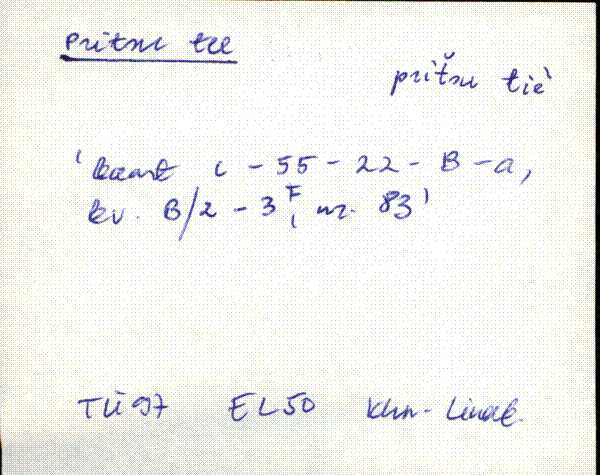 pritsu tee
pritšu tiè
'kaart C - 55 - 22 - B - a,
kv. B/2 - 3F, nr. 83'
TÜ 97 EL50 Khn-Linak.